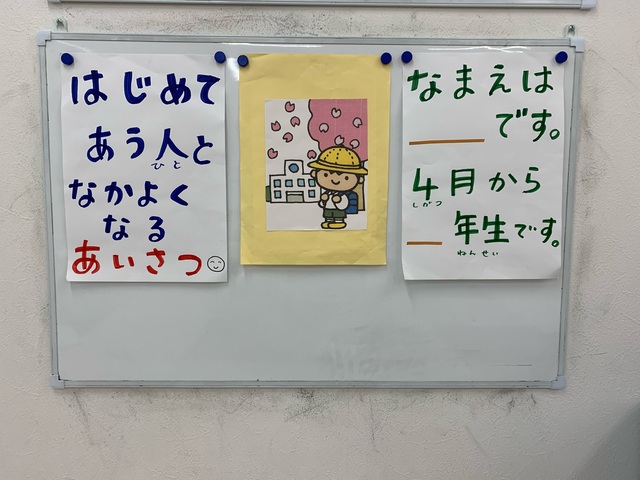 はじめて
あう人と
ひと
なかよく
なる
あいさつ
なまえは
＿＿＿です。
4月から
しがつ
＿年生です。
ねんせい